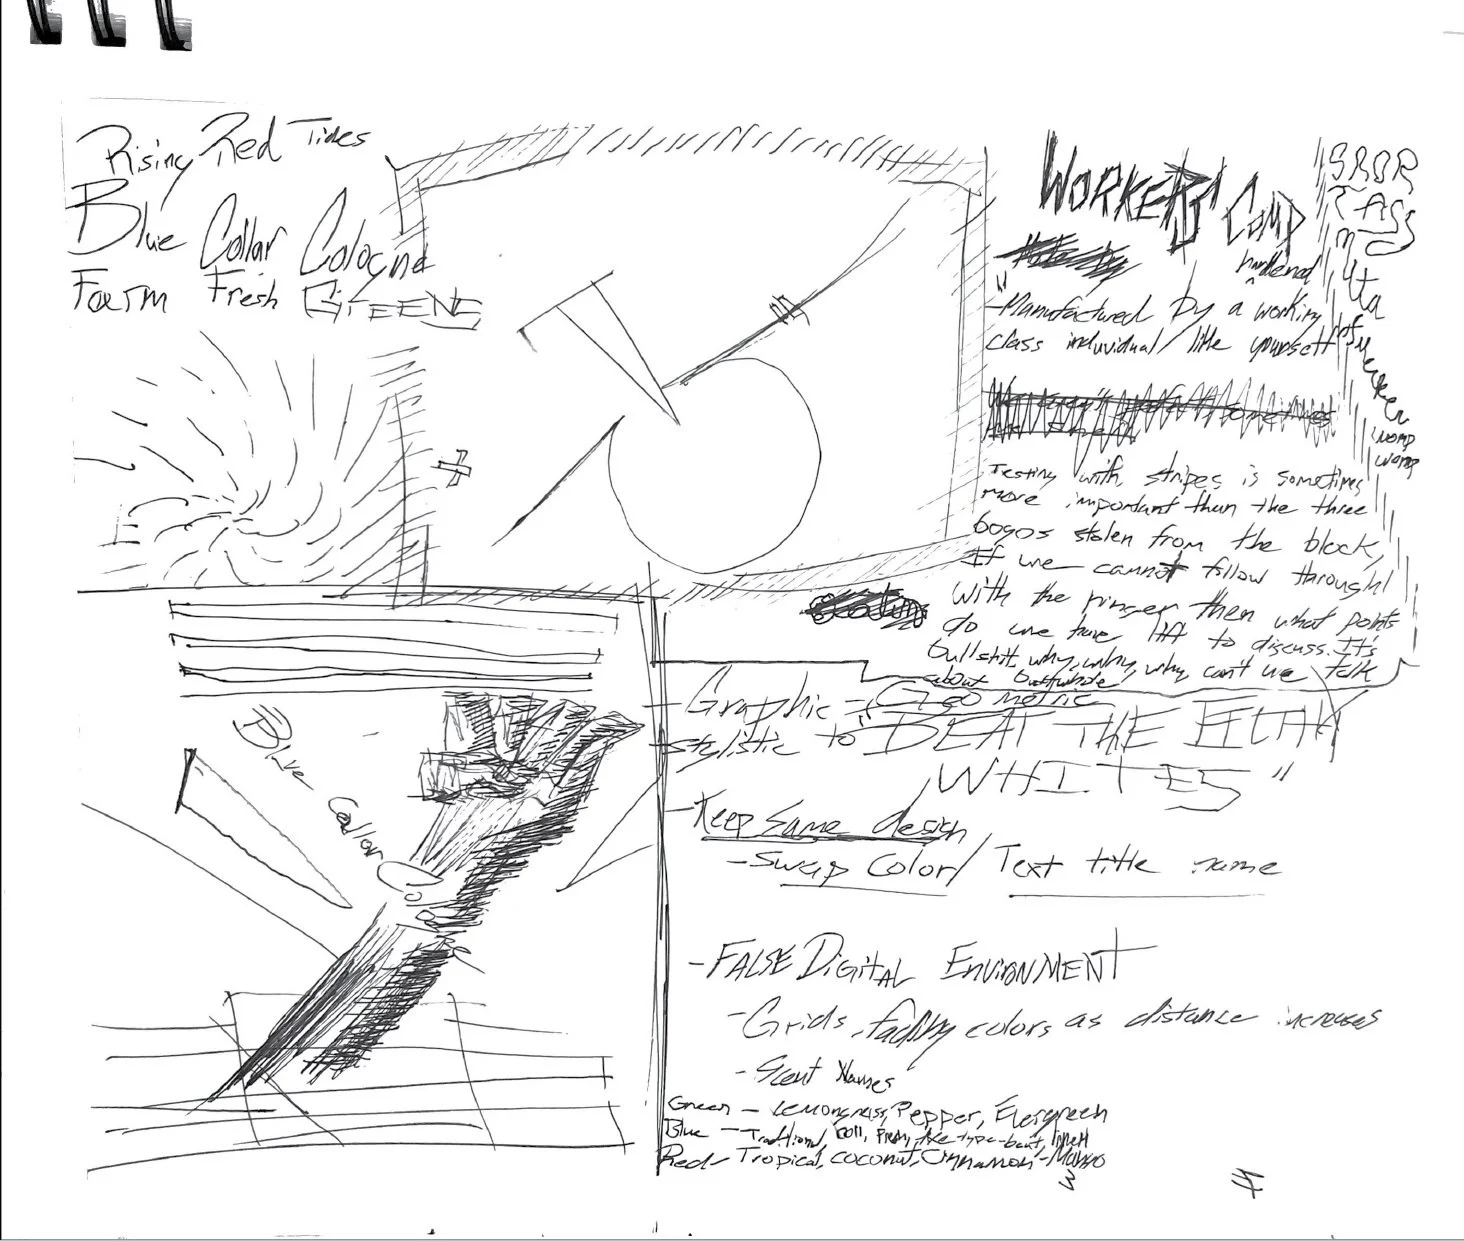 Rising Red Tides
Blue Collar Cologne
Farm Fresh GrEENS
WORKERS' Comp
hardened
"Manufactured by a working
class induvidual/like yourself
womp
womp
Testing with stripes is sometimes
more important than the three
bogos stolen from the block,
If we cannot follow through
with the ringer then what points
do we have to discuss. It's
bullshit why, why, why can't we talk
about
Blue Collar
-Graphic = Geometric
stylistic to "BEAT THE
WHITES"
-Keep same design
-Swap Color/ Text title name
-FALSE DIGITAL EnvironMENT
-Grids, fading colors as distance increases
-Scent Names
Green - Lemongrass, Pepper, Evergreen
Blue - Traditional,
Red - Tropical, coconut, Cinnamon-Mango
3